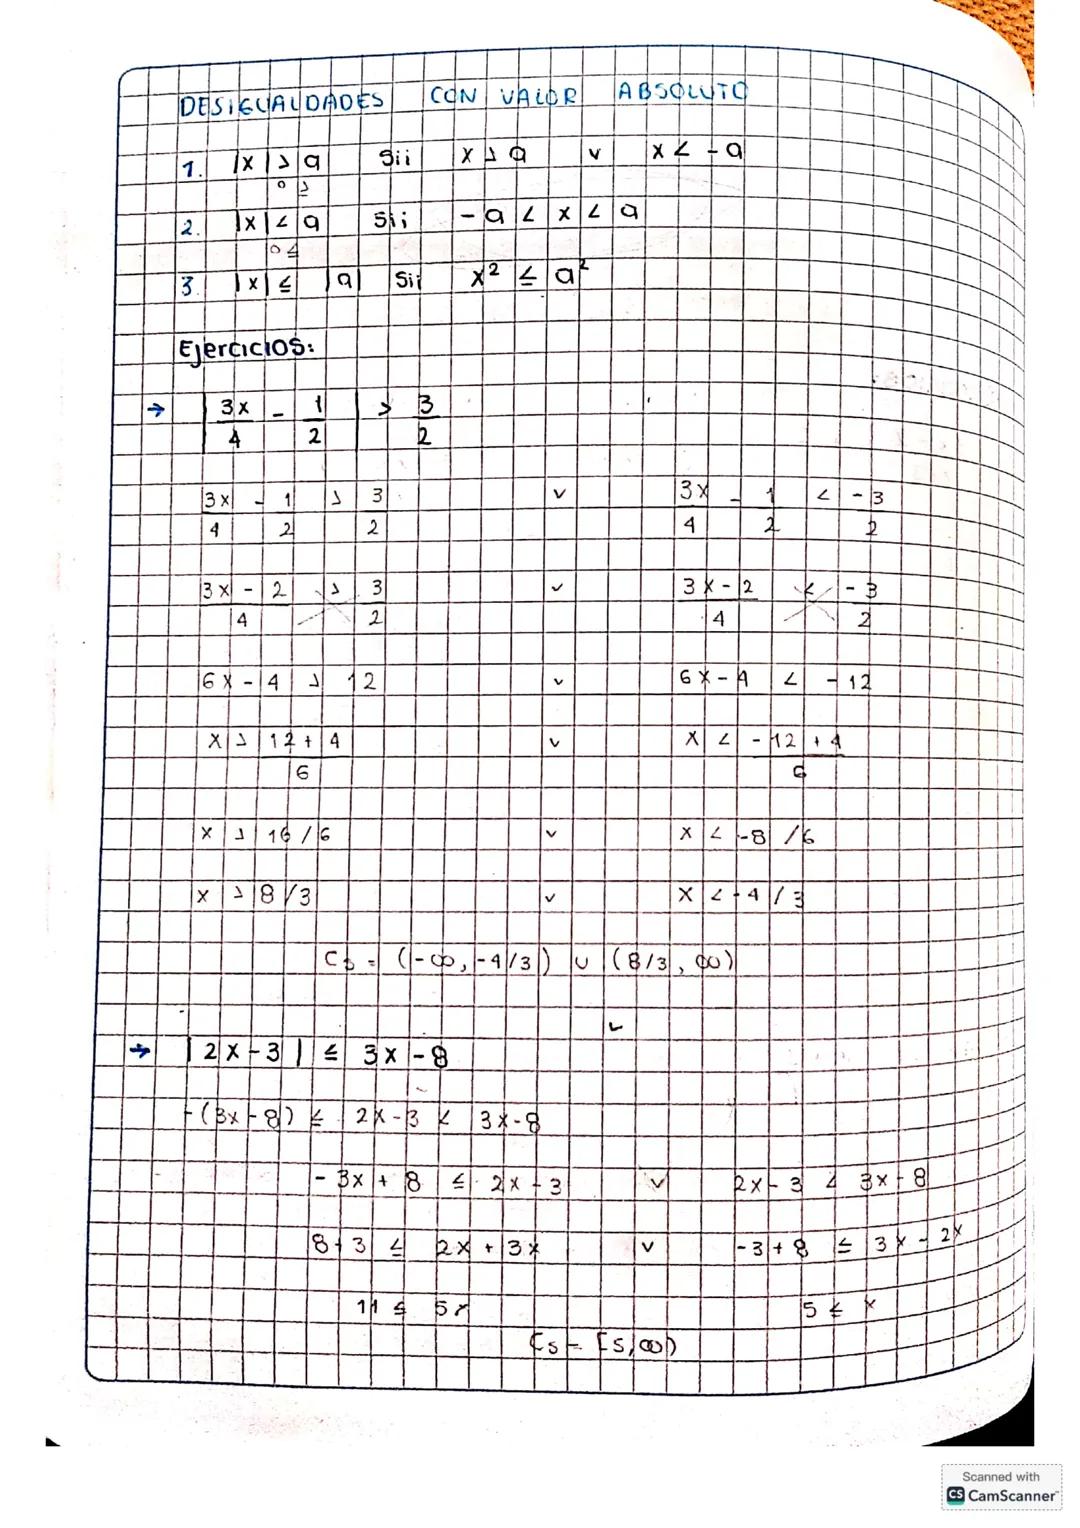 DESIGUALDADES CON VALOR ABSOLUTO
1. |x| > a Sii x > a v x < -a
o ≥
2. |x| < a Sii -a < x < a
o ≤
3. |x| ≤ |a| Sii x² ≤ a²
Ejercicios:
→ |3x/4 - 1/2| > 3/2
3x/4 - 1/2 > 3/2 v 3x/4 - 1/2 < -3/2
3x - 2/4 > 3/2 v 3x - 2/4 < -3/2
6x - 4 > 12 v 6x - 4 < -12
x > 12 + 4/6 v x < -12 + 4/6
x > 16/6 v x < -8/6
x > 8/3 v x < -4/3
Cs = (-∞, -4/3) ∪ (8/3, ∞)
→ |2x - 3| ≤ 3x - 8
-(3x - 8) ≤ 2x - 3 < 3x - 8
-3x + 8 ≤ 2x - 3 v 2x - 3 < 3x - 8
8 + 3 ≤ 2x + 3x v -3 + 8 ≤ 3x - 2x
11 ≤ 5x 5 ≤ x
Cs = [5, ∞)
Scanned with
CS CamScanner